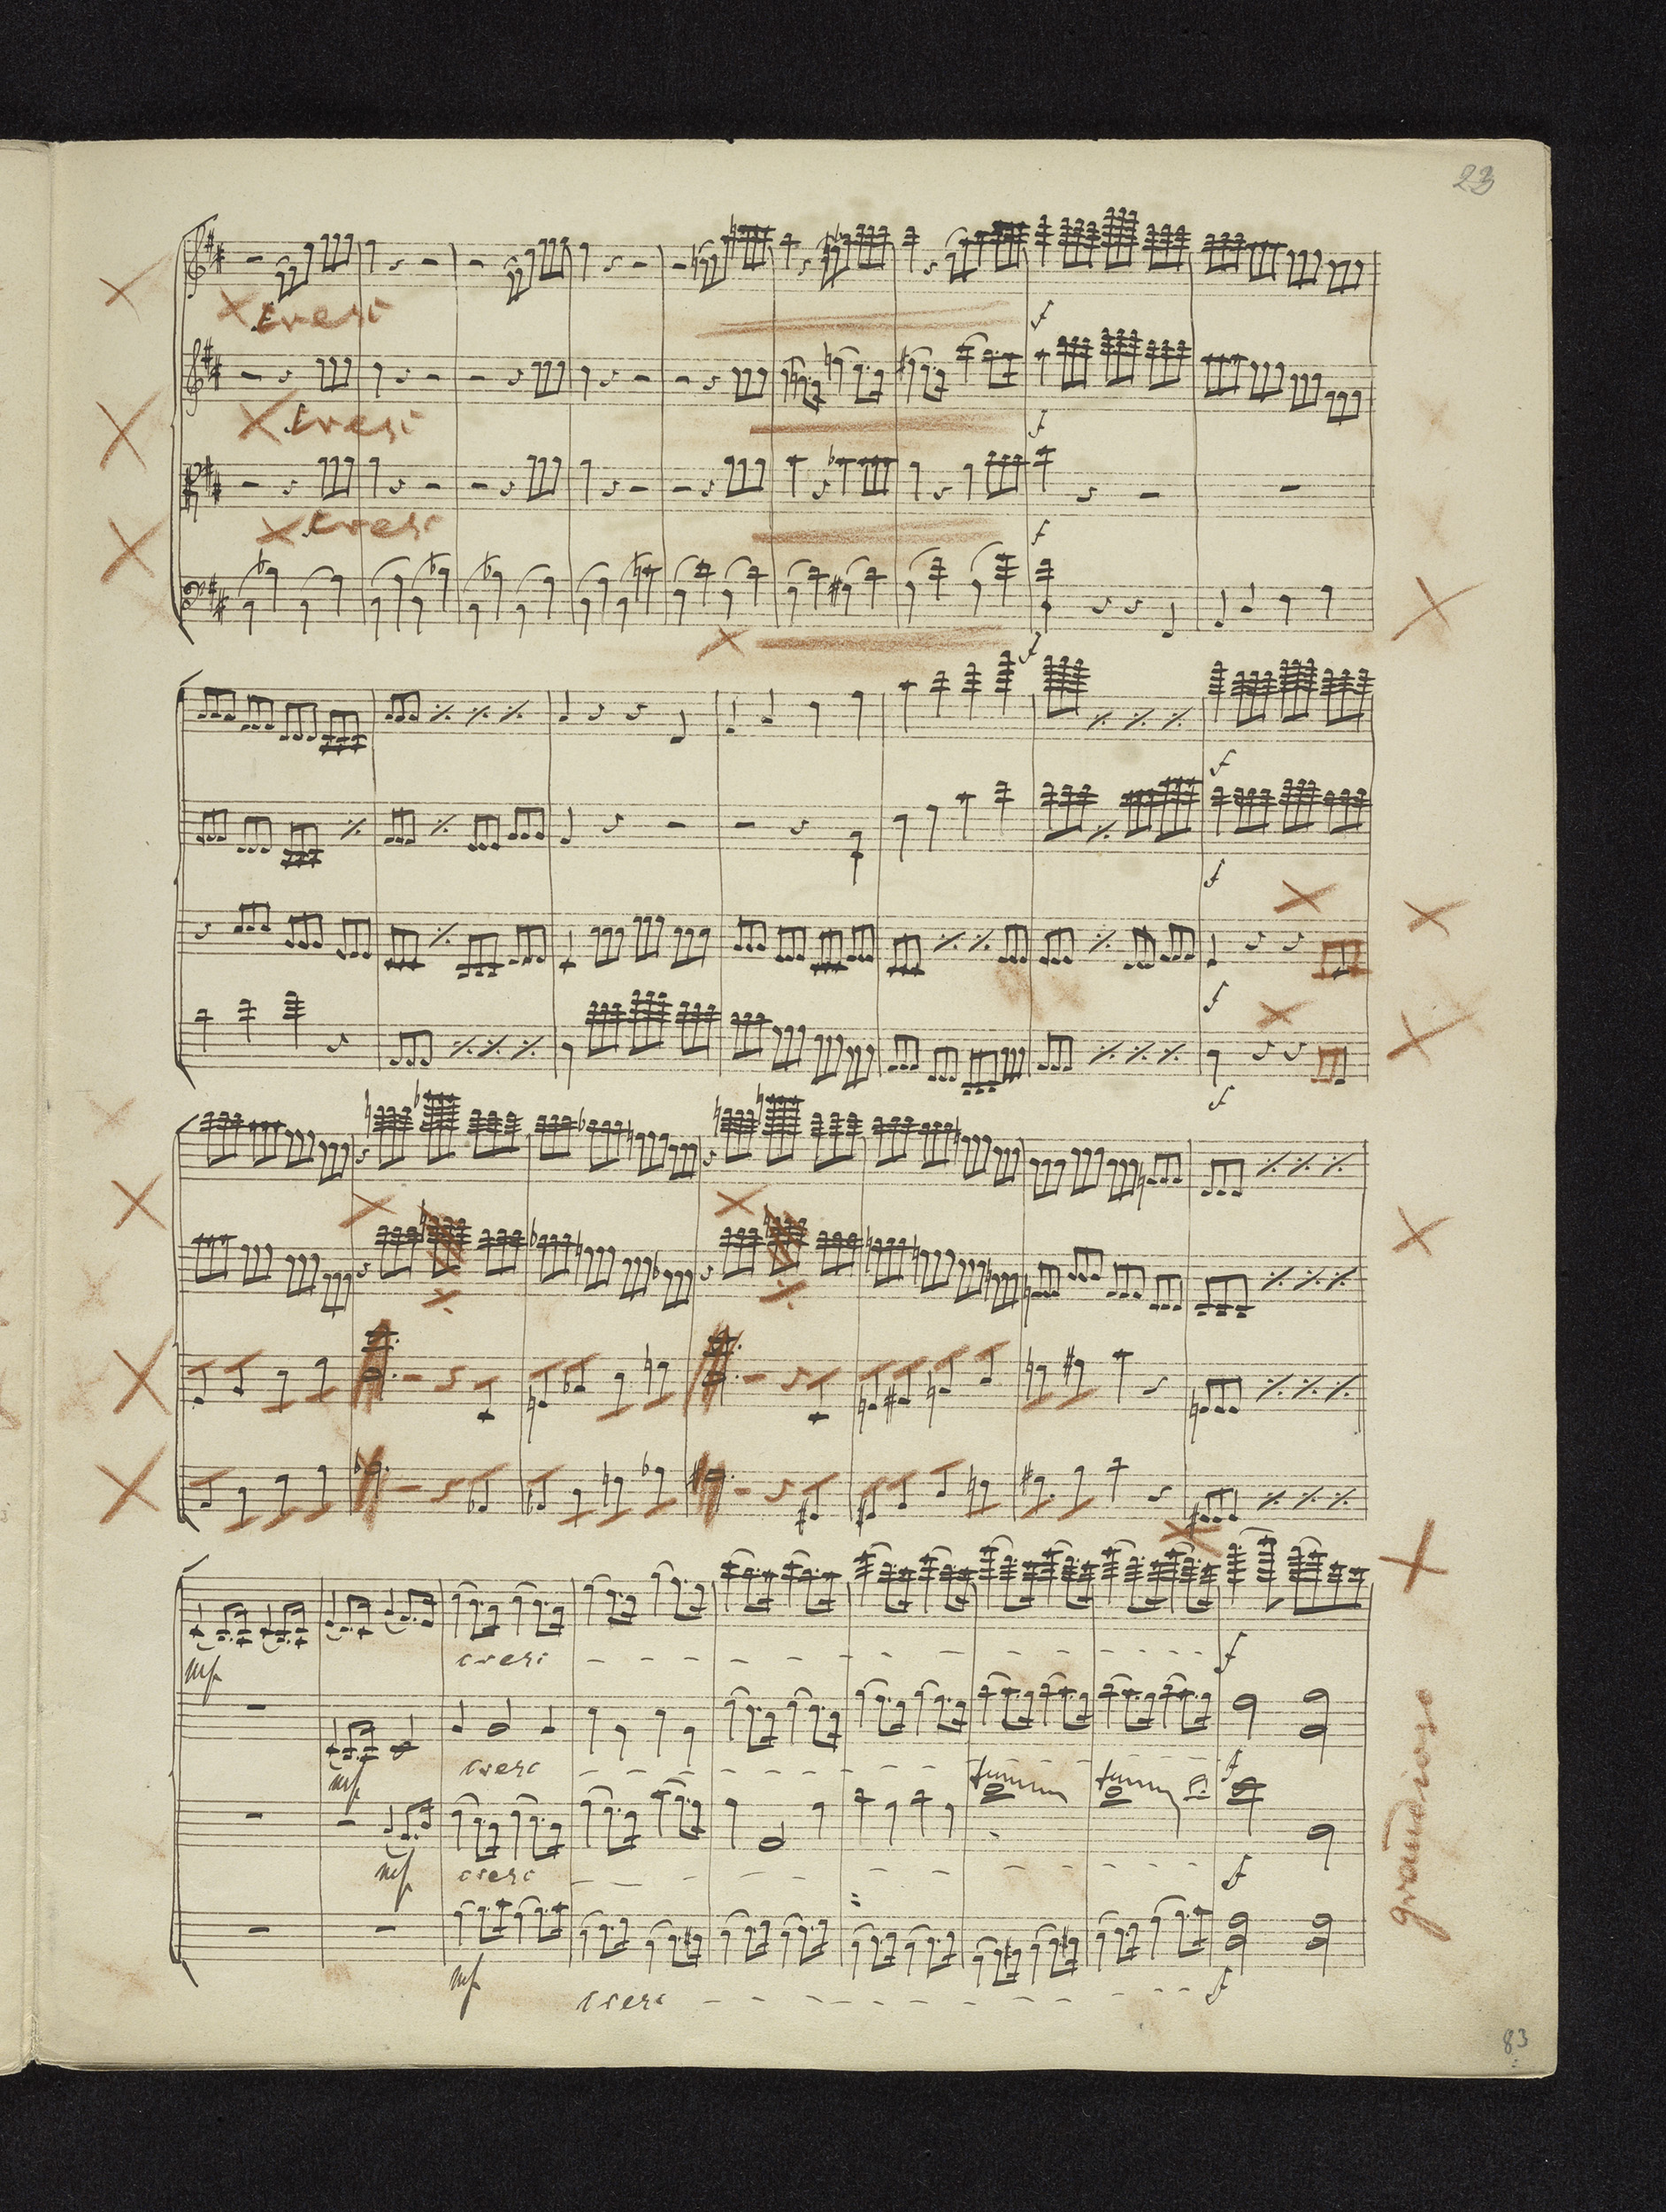 23
cresc
f
cresc
f
cresc
f
f
f
f
f
f
mf
cresc
f
mf
cresc
f
mf
cresc
f
mf
cresc
f
grandioso
83